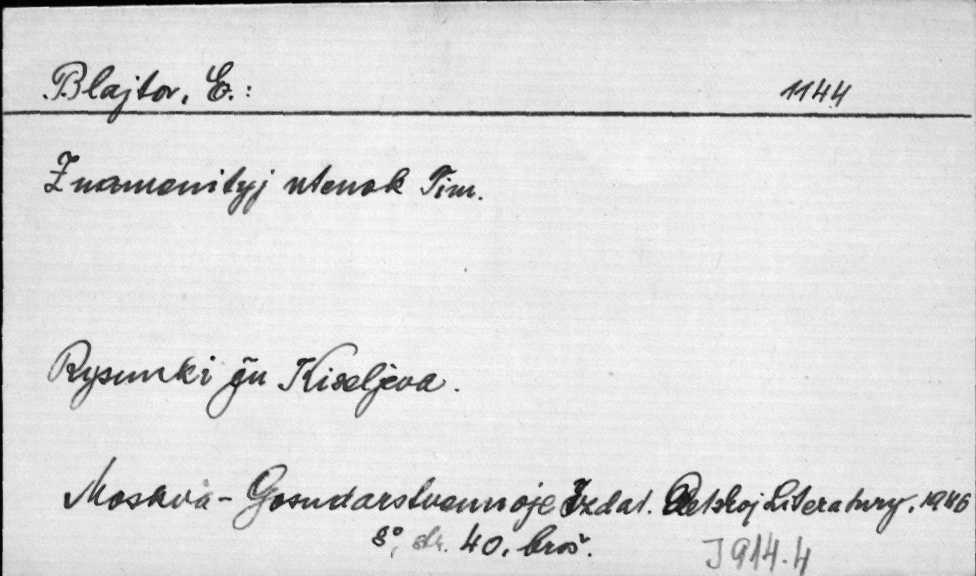 Blajtor, E.: 1144
Znamenityj utenok Tim.
Rysunki Ju Kiseljeva.
Moskva - Gosudarstvennoje Izdat. Detskoj Literatury. 1946
8°, str. 40. broš.
J 914.4